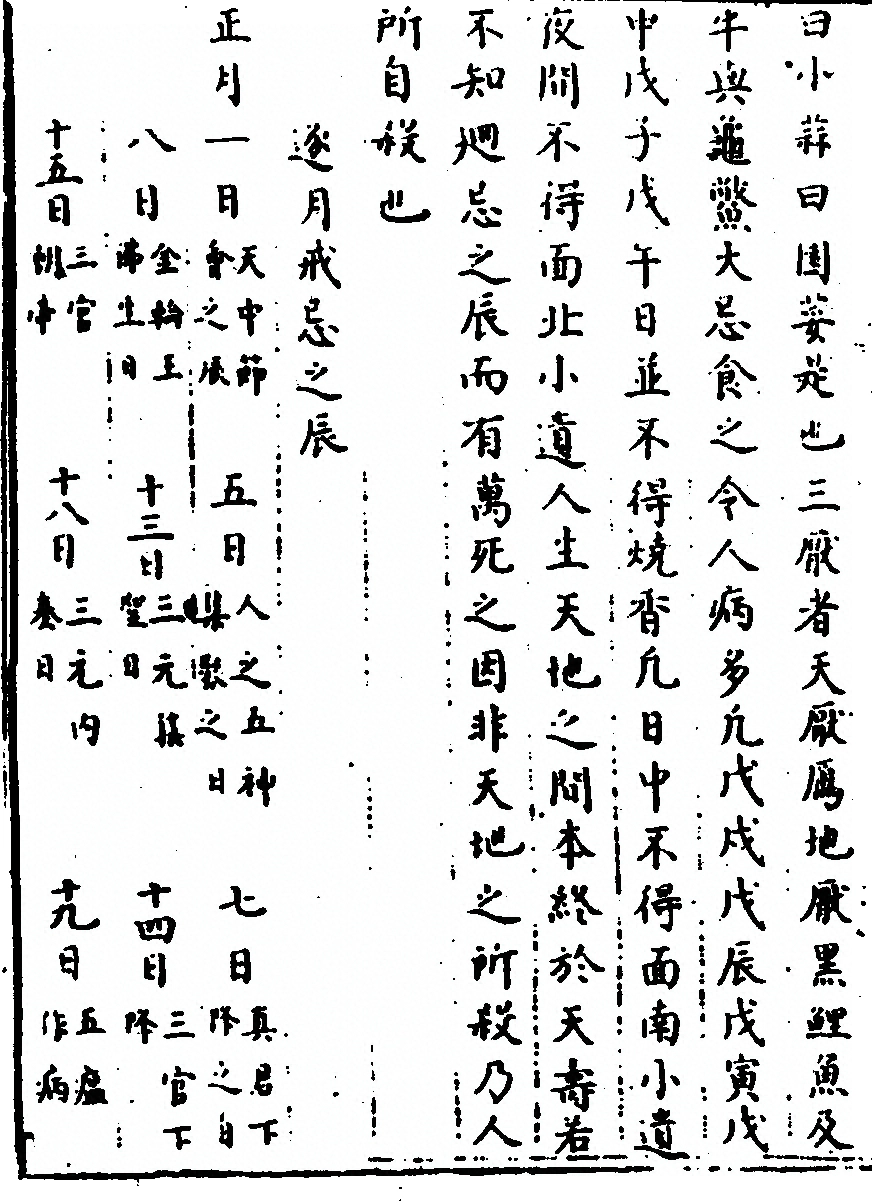 曰小蒜曰園荽是也三厭者天厭鴈地厭黑鯉魚及
牛與龜鱉大忌食之令人病多凢戊戌戊辰戊寅戊
申戊子戊午日並不得燒香凢日中不得面南小遺
夜間不得面北小遺人生天地之間本終於天壽若
不知廻忌之辰而有萬死之因非天地之所殺乃人
所自殺也
逐月戒忌之辰
正月一日天中節會之辰 五日人之五神集㗖之日 七日真君下降之日
八日金輪王浠生日 十三日三元集聖日 十四日三官下降
十五日三官朝帝 十八日三元內奏日 十九日五瘟作病